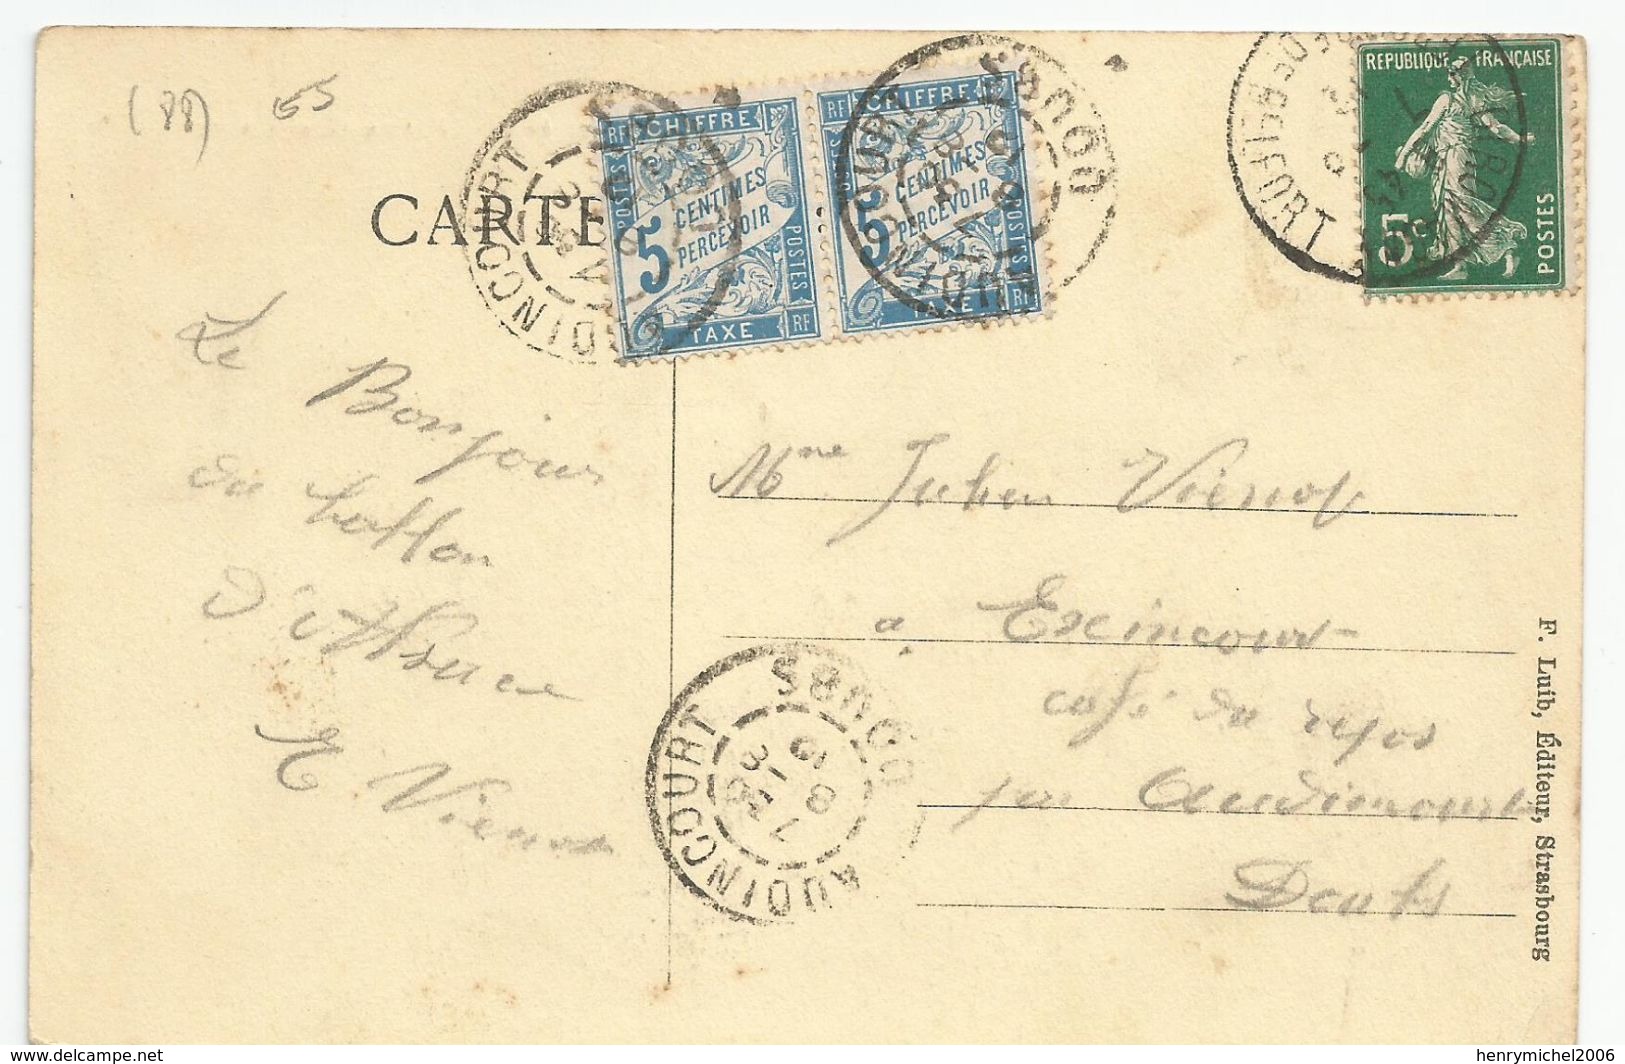 (88)
CARTE
RF CHIFFRE
POSTES
5 CENTIMES
PERCEVOIR
POSTES
TAXE RF
RF CHIFFRE
5 CENTIMES
PERCEVOIR
POSTES
TAXE RF
AUDINCOURT
DOUBS
AUDINCOURT
DOUBS
REPUBLIQUE FRANÇAISE
5
POSTES
Le Bonjour
du ballon
d'Alsace
Vienot
Mme Julien Vienot
a Exincourt
café du repos
par Audincourt
Doubs
AUDINCOURT
DOUBS
F. Luib, Éditeur, Strasbourg
www.delcampe.net
henrymichel2006